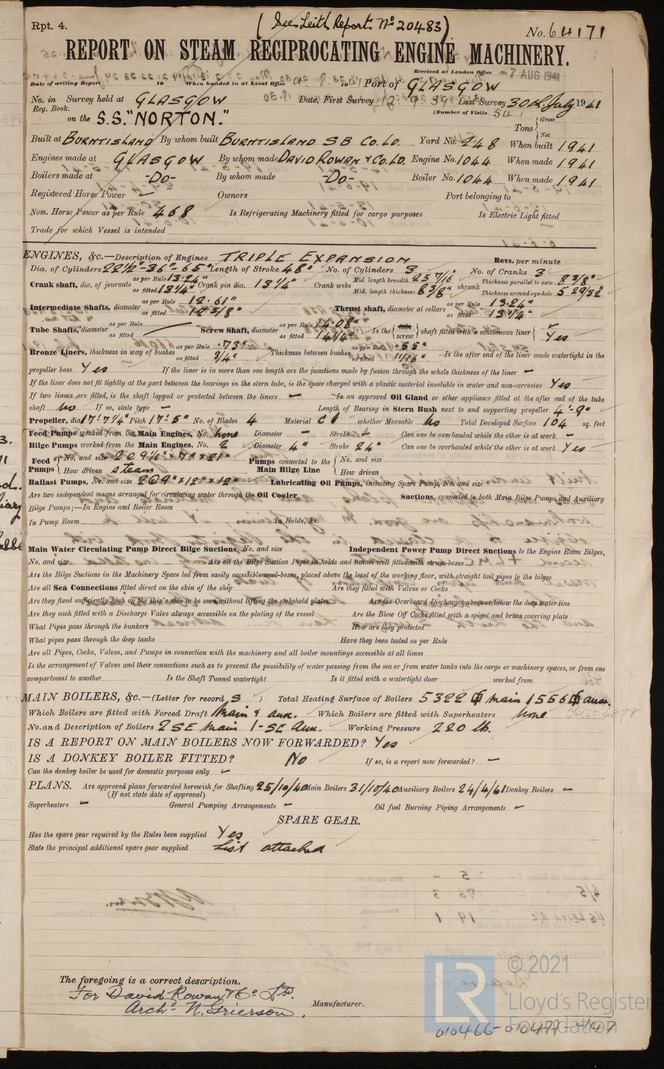 Rpt. 4.
(See Leith Report No 20483)
No. 64171
REPORT ON STEAM RECIPROCATING ENGINE MACHINERY.
Received at London Office 7 AUG 1941
Date of writing Report 19 When handed in at Local Office 19 Port of GLASGOW
No. in Survey held at GLASGOW Date, First Survey 12 9 39 Last Survey 30th July 1941
Reg. Book. (Number of Visits 54)
on the S.S. "NORTON." Tons Gross Net
Built at BURNTISLAND By whom built BURNTISLAND S B Co. Ld. Yard No. 248 When built 1941
Engines made at GLASGOW By whom made DAVID ROWAN & Co. LD. Engine No. 1044 When made 1941
Boilers made at -Do- By whom made -Do- Boiler No. 1044 When made 1941
Registered Horse Power Owners Port belonging to
Nom. Horse Power as per Rule 468 Is Refrigerating Machinery fitted for cargo purposes Is Electric Light fitted
Trade for which Vessel is intended
ENGINES, &c.—Description of Engines TRIPLE EXPANSION Revs. per minute
Dia. of Cylinders 22½"-36"-65" Length of Stroke 48" No. of Cylinders 3 No. of Cranks 3
Crank shaft, dia. of journals as per Rule 13.24" as fitted 13¼" Crank pin dia. 13¼" Crank webs Mid. length breadth 25 7/16" Mid. length thickness 8 3/8" shrunk Thickness parallel to axis 8 3/8" Thickness around eye-hole 5 29/32"
Intermediate Shafts, diameter as per Rule 12.61" as fitted 12 5/8" Thrust shaft, diameter at collars as per Rule 13.24" as fitted 13¼"
Tube Shafts, diameter as per Rule as fitted Screw Shaft, diameter as per Rule 14.08" as fitted 14¼" Is the screw shaft fitted with a continuous liner Yes
Bronze Liners, thickness in way of bushes as per Rule .73" as fitted ¾" Thickness between bushes as per Rule .55" as fitted 11/16" Is the after end of the liner made watertight in the
propeller boss Yes If the liner is in more than one length are the junctions made by fusion through the whole thickness of the liner –
If the liner does not fit tightly at the part between the bearings in the stern tube, is the space charged with a plastic material insoluble in water and non-corrosive Yes
If two liners are fitted, is the shaft lapped or protected between the liners – Is an approved Oil Gland or other appliance fitted at the after end of the tube
shaft No If so, state type – Length of Bearing in Stern Bush next to and supporting propeller 4'-9"
Propeller, dia 17'-7¼" Pitch 17'-5" No. of Blades 4 Material C I whether Moveable No Total Developed Surface 104 sq. feet
Feed Pumps worked from the Main Engines, No. none Diameter – Stroke – Can one be overhauled while the other is at work –
Bilge Pumps worked from the Main Engines, No. 2 Diameter 4" Stroke 24" Can one be overhauled while the other is at work Yes
Feed Pumps No. and size 2 @ 9¼" x 7" x 21" How driven steam Pumps connected to the Main Bilge Line No. and size How driven
Ballast Pumps, No. and size 2 @ 9" x 12" x 12" Lubricating Oil Pumps, including Spare Pump, No. and size
Are two independent means arranged for circulating water through the Oil Cooler Suctions, connected to both Main Bilge Pumps and Auxiliary
Bilge Pumps;—In Engine and Boiler Room
In Pump Room In Holds, &c.
Main Water Circulating Pump Direct Bilge Suctions, No. and size Independent Power Pump Direct Suctions to the Engine Room Bilges,
No. and size Are all the Bilge Suction Pipes in holds and tunnel well fitted with strum-boxes
Are the Bilge Suctions in the Machinery Space led from easily accessible mud-boxes, placed above the level of the working floor, with straight tail pipes to the bilges
Are all Sea Connections fitted direct on the skin of the ship Are they fitted with Valves or Cocks
Are they fixed sufficiently high on the ship's side to be seen without lifting the stokehold plates Are the Overboard Discharges above or below the deep water line
Are they each fitted with a Discharge Valve always accessible on the plating of the vessel Are the Blow Off Cocks fitted with a spigot and brass covering plate
What Pipes pass through the bunkers How are they protected
What pipes pass through the deep tanks Have they been tested as per Rule
Are all Pipes, Cocks, Valves, and Pumps in connection with the machinery and all boiler mountings accessible at all times
Is the arrangement of Valves and their connections such as to prevent the possibility of water passing from the sea or from water tanks into the cargo or machinery spaces, or from one
compartment to another Is the Shaft Tunnel watertight Is it fitted with a watertight door worked from
MAIN BOILERS, &c.—(Letter for record S) Total Heating Surface of Boilers 5322 main 1556 aux.
Which Boilers are fitted with Forced Draft Main & aux. Which Boilers are fitted with Superheaters none
No. and Description of Boilers 2 SE Main 1-SE Aux. Working Pressure 220 lb.
IS A REPORT ON MAIN BOILERS NOW FORWARDED? Yes
IS A DONKEY BOILER FITTED? No If so, is a report now forwarded? –
Can the donkey boiler be used for domestic purposes only –
PLANS. Are approved plans forwarded herewith for Shafting 25/10/40 Main Boilers 31/10/40 Auxiliary Boilers 24/4/41 Donkey Boilers –
(If not state date of approval)
Superheaters – General Pumping Arrangements – Oil fuel Burning Piping Arrangements –
SPARE GEAR.
Has the spare gear required by the Rules been supplied Yes
State the principal additional spare gear supplied List attached
The foregoing is a correct description.
For David Rowan & Co. Ltd.
Archd. N. Grierson. Manufacturer.
LR © 2021
Lloyd's Register
Foundation
010466-010477-0147